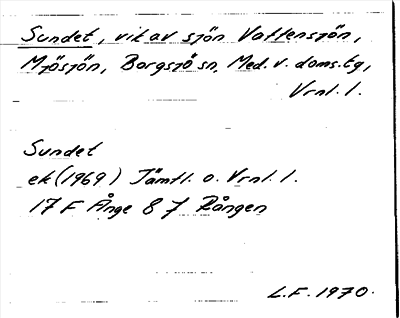 Sundet, vik av sjön Vattensjön,
Mjösjön, Borgsjö sn, Med. v. doms. tg,
Vrnl. l.
Sundet
ek (1969) Jämtl. o. Vrnl. l.
17 F Ånge 8 7 Rången
L.F. 1970.